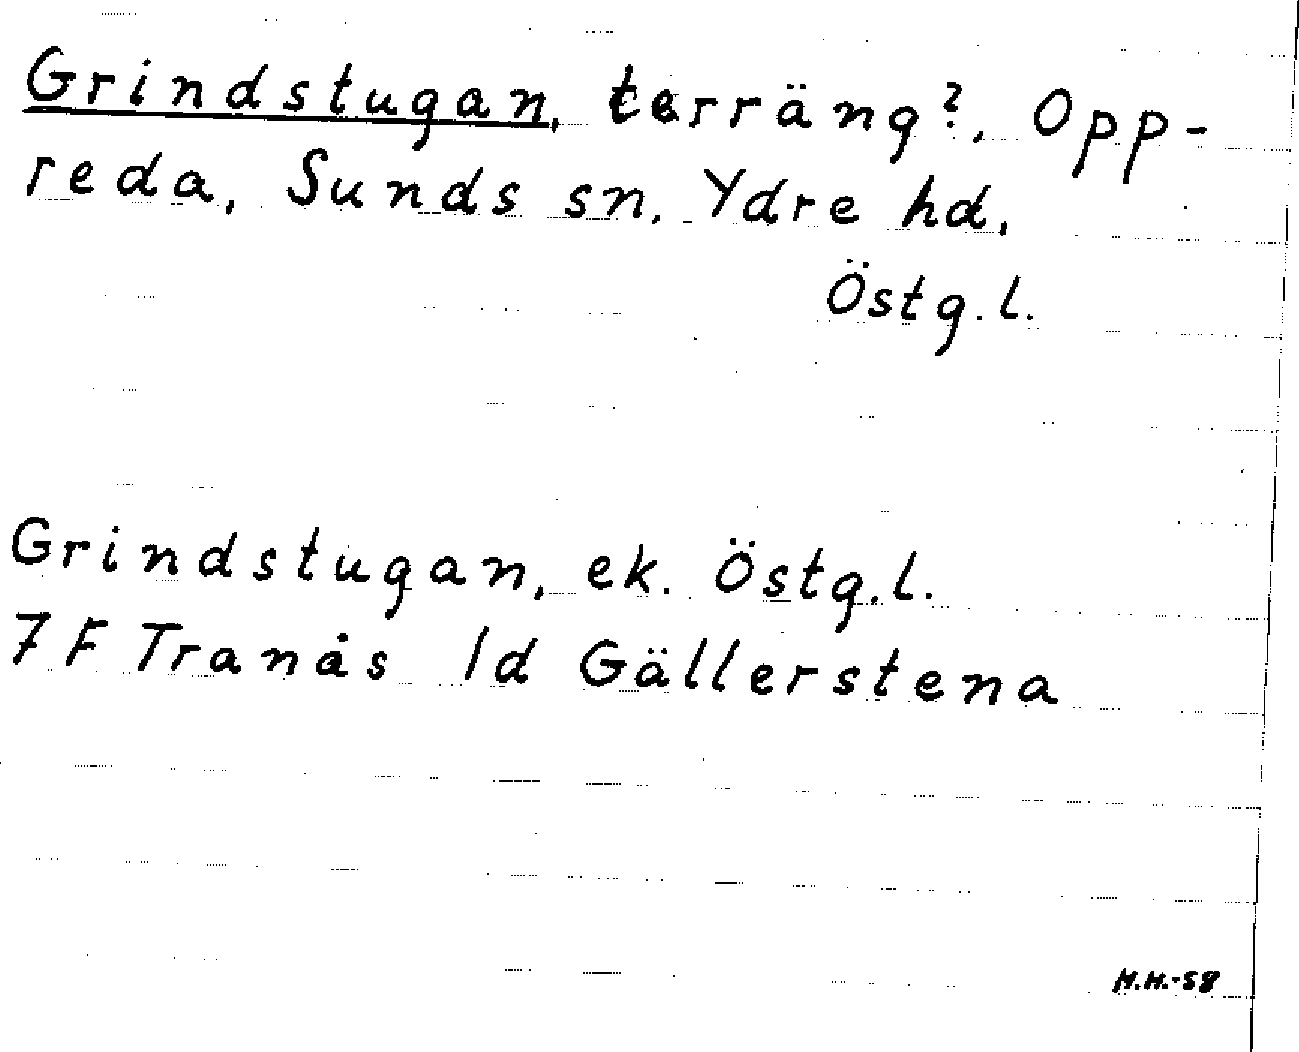 Grindstugan, terräng?, Opp-
reda, Sunds sn. Ydre hd,
Östg.l.
Grindstugan, ek. Östg.l.
7 F Tranås 1d Gällerstena
H.H.-58